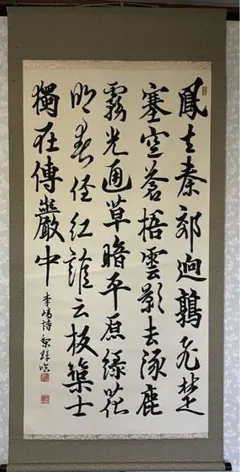 鳳出秦郊迥鶉飛楚
塞空蒼梧雲影去涿鹿
霧光通草暗平原緑花
明春径紅誰云板築士
獨在傅巖中
李嶠詩